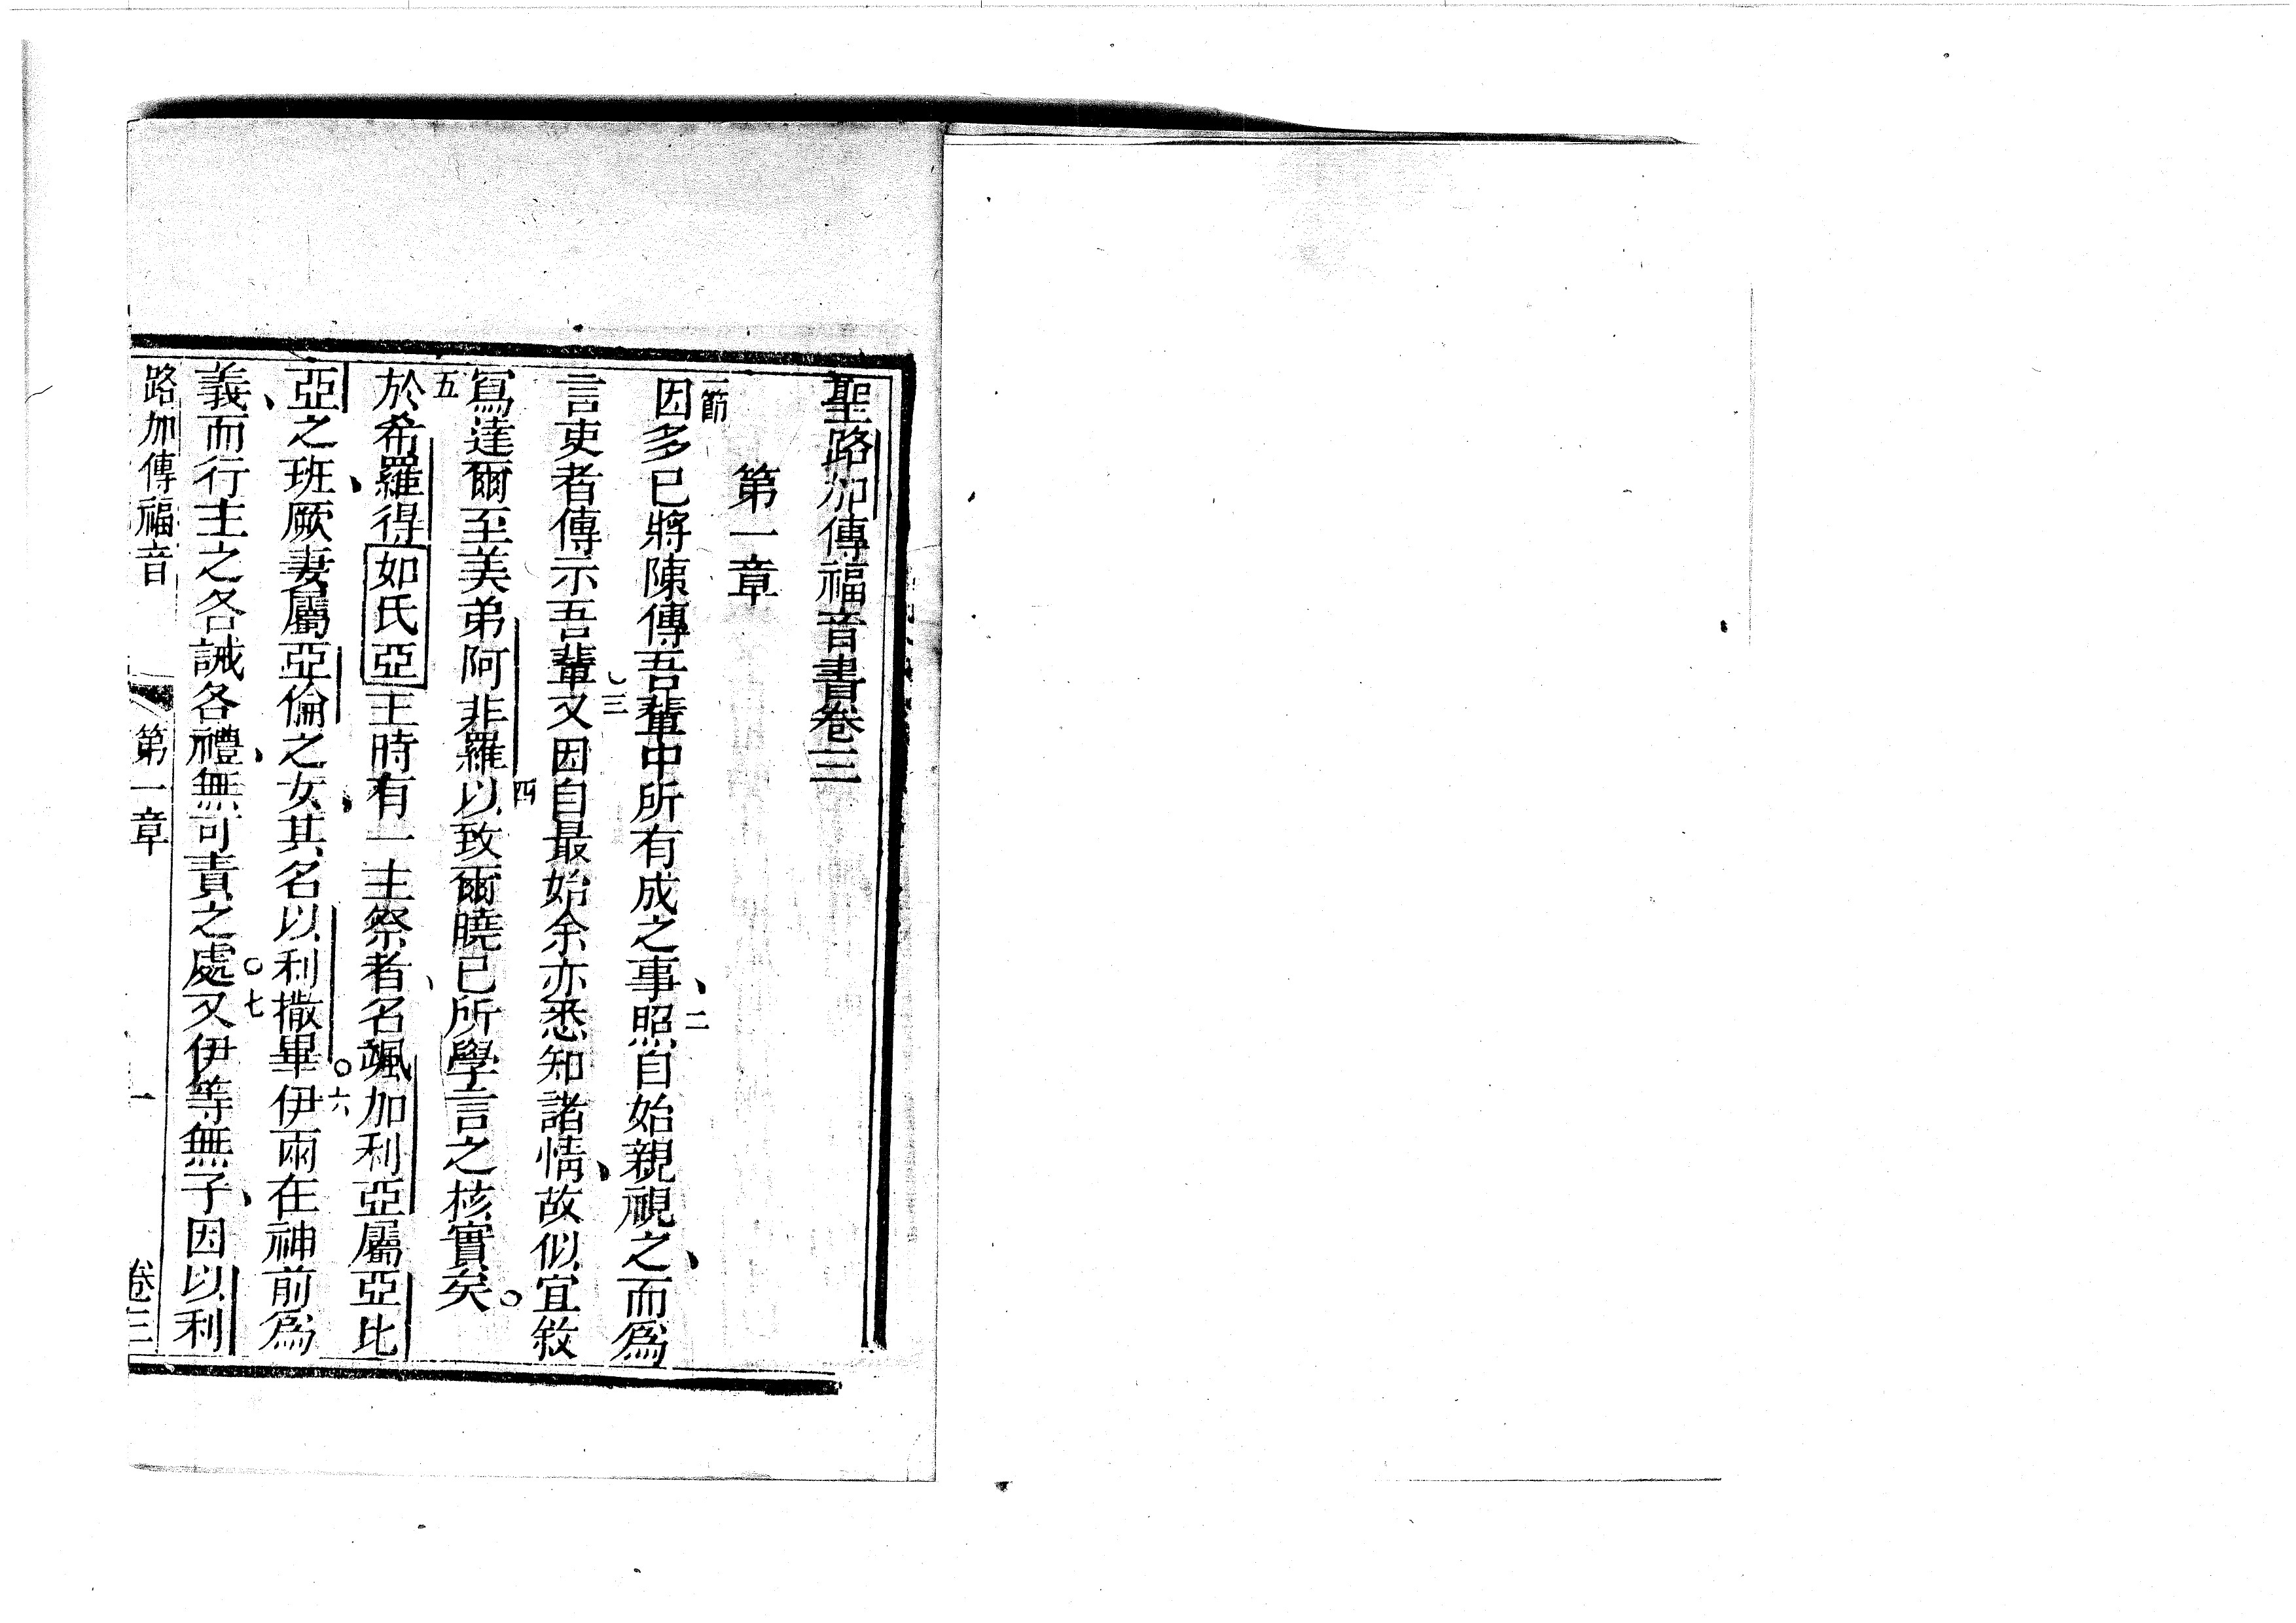 聖路加傳福音書卷三
第一章
一節
因多已將陳傳吾輩中所有成之事、二照自始親視之、而為
言吏者傳示吾輩三又因自最始余亦悉知諸情、故似宜敘
寫達爾至美弟阿非羅四以致爾曉已所學言之核實矣。
五於希羅得如氏亞王時有一主祭者、名颯加利亞屬亞比
亞之班、厥妻屬亞倫之女、其名以利撒畢。六伊兩在神前為
義、而行主之各誡各禮、無可責之處。七又伊等無子、因以利
路加傳福音 第一章 一 卷三